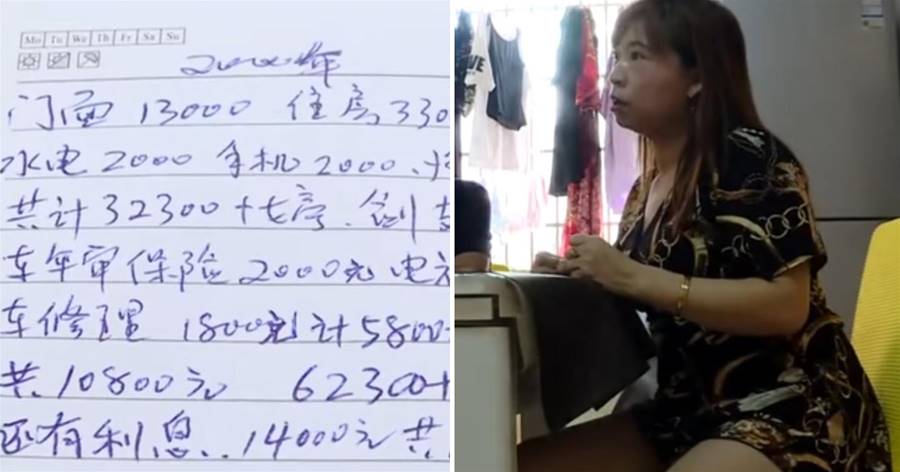 Mo Tu We Th Fr Sa Su
门面 13000 住房 330
水电 2000 手机 2000、
共计 32300 +七
车年审保险 2000元 电
车修理 1800元 计5800
共 10800元 62300+
还有利息..14000元 共